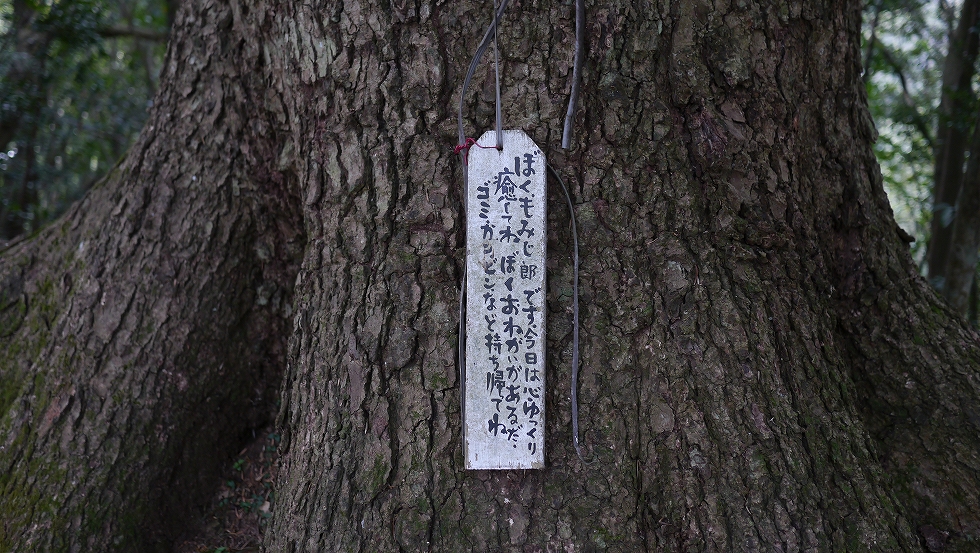 ぼくもみじ郎です今日は心ゆっくり
癒してねぼくおねがいがあるだ、
ゴミ.カン.ビンなど持ち帰てね